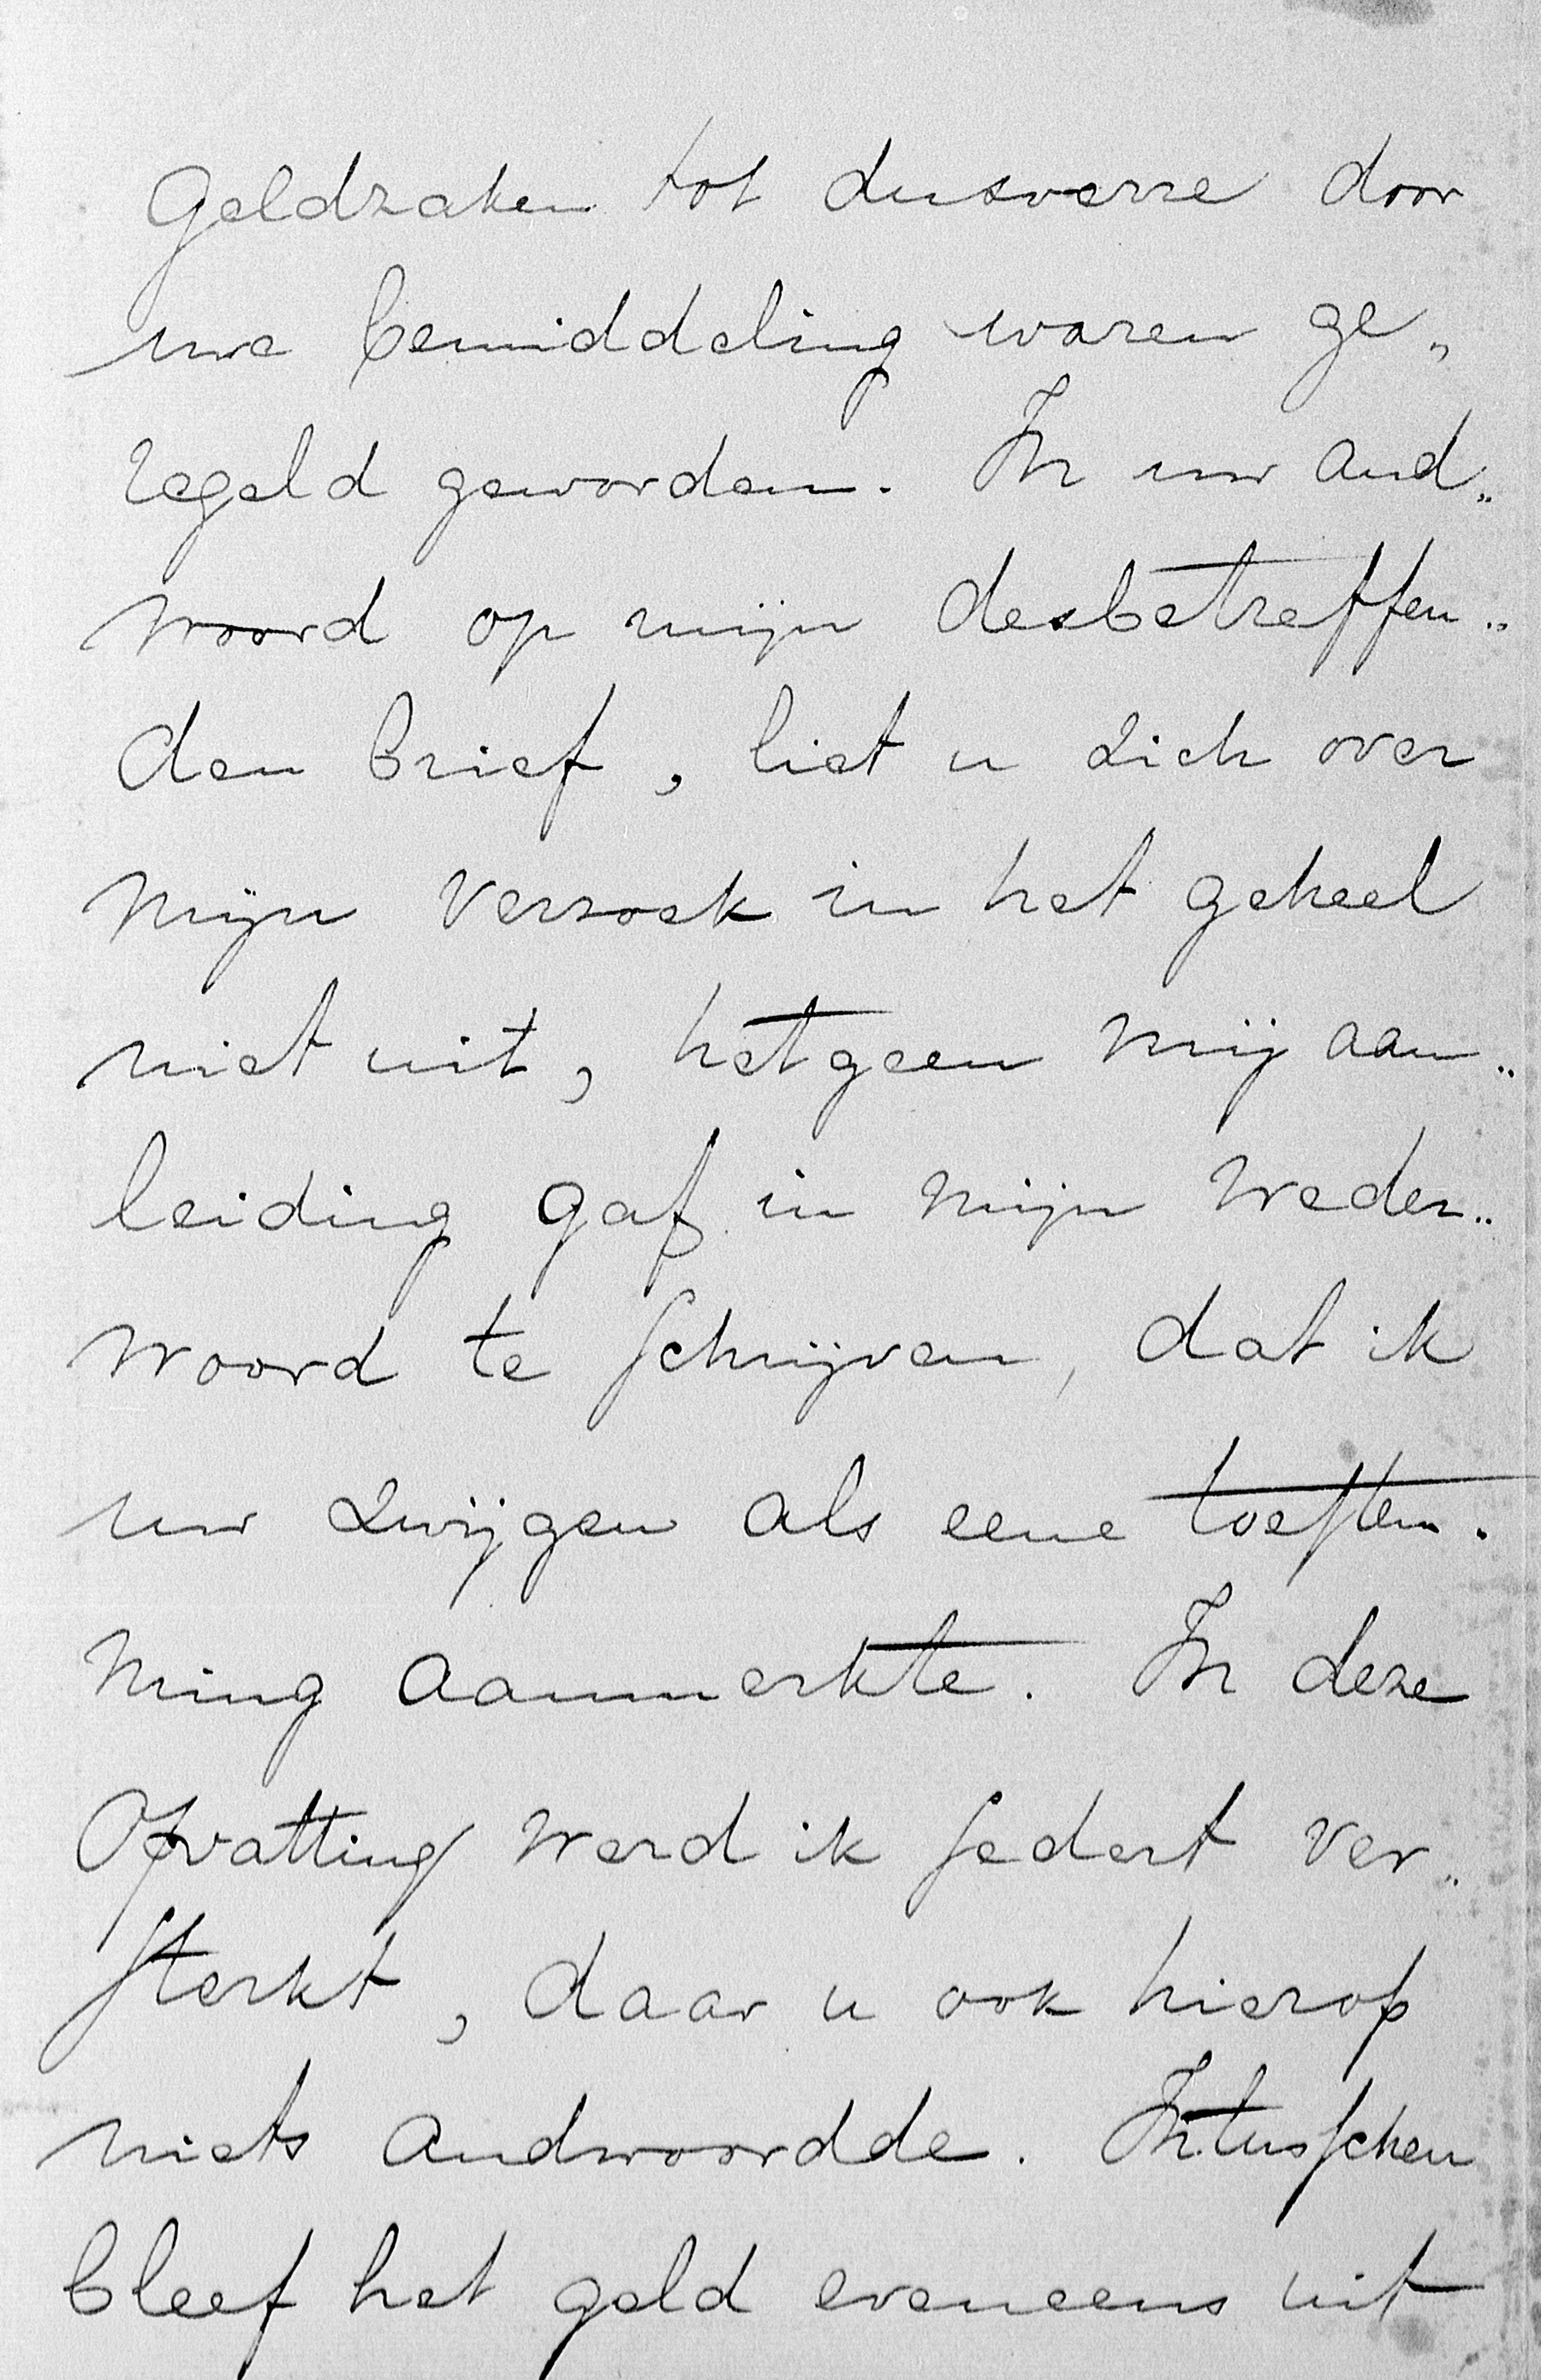 Geldzaken tot dusverre door
uwe bemiddeling waren ge„
regeld geworden. In uw and„
woord op mijn desbetreffen„
den brief, liet u zich over
mijn verzoek in het geheel
niet uit, hetgeen mij aan„
leiding gaf in mijn weder„
woord te schrijven, dat ik
uw zwijgen als eene toestem„
ming aanmerkte. In deze
Opvatting werd ik sedert ver„
sterkt, daar u ook hierop
niets andwoordde. Intusschen
bleef het geld eveneens uit